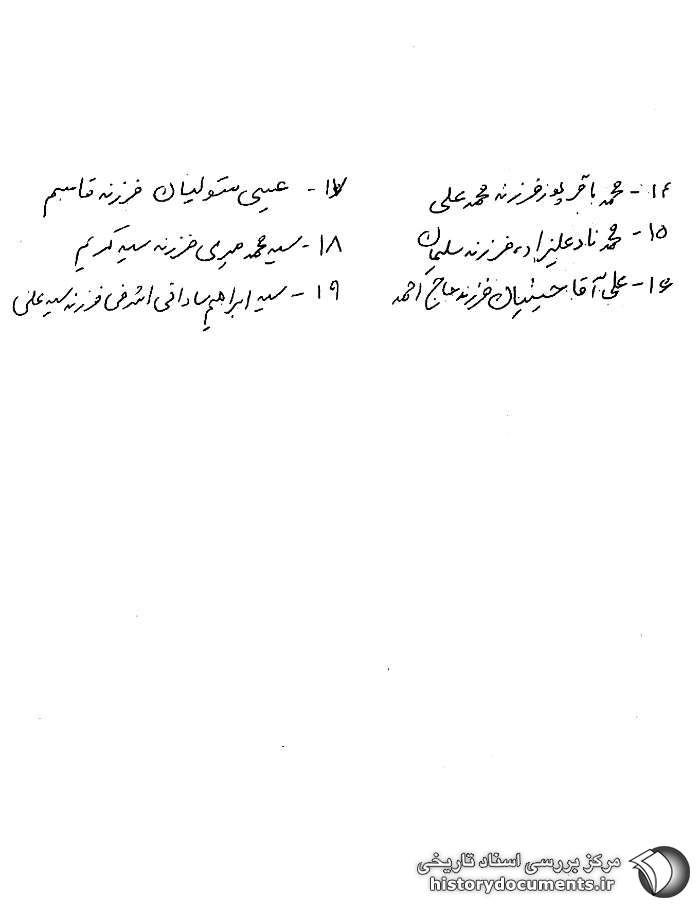 ۱۴- محمد باقرپور فرزند محمدعلی
۱۵- محمد نادعلیزاده فرزند سلیمان
۱۶- علی آقا حسینیان فرزند حاج احمد
۱۷- عیسی متولیان فرزند قاسم
۱۸- سید محمد میری فرزند سید کریم
۱۹- سید ابراهیم ساداتی اشرفی فرزند سید علی
مرکز بررسی اسناد تاریخی
historydocuments.ir